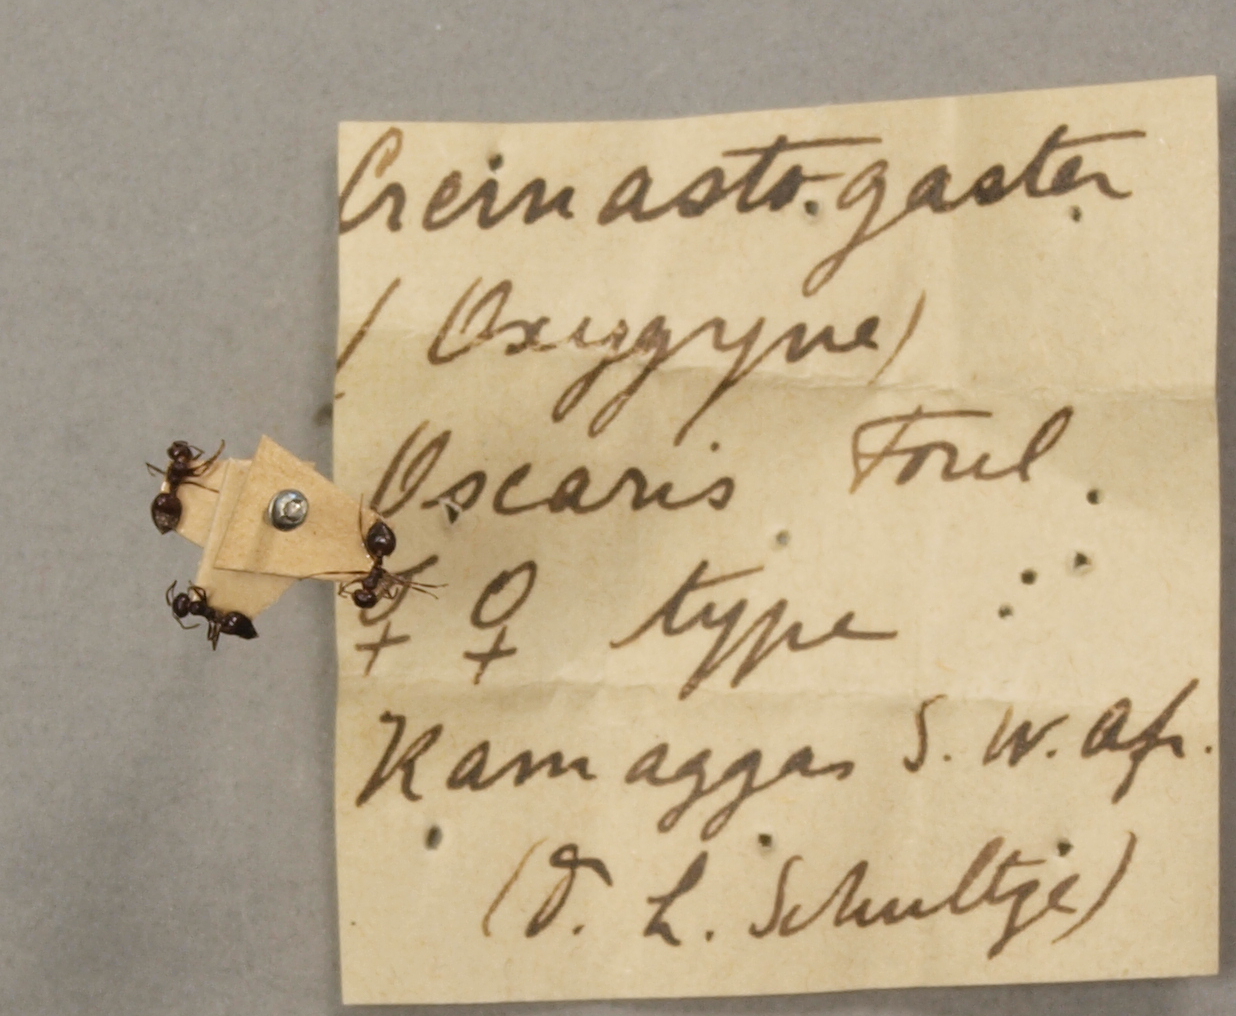 Cremastogaster
(Oxygyne)
Oscaris Forel
☿ ♀ type
Kamaggas S. W. Afr.
(D. L. Schultze)